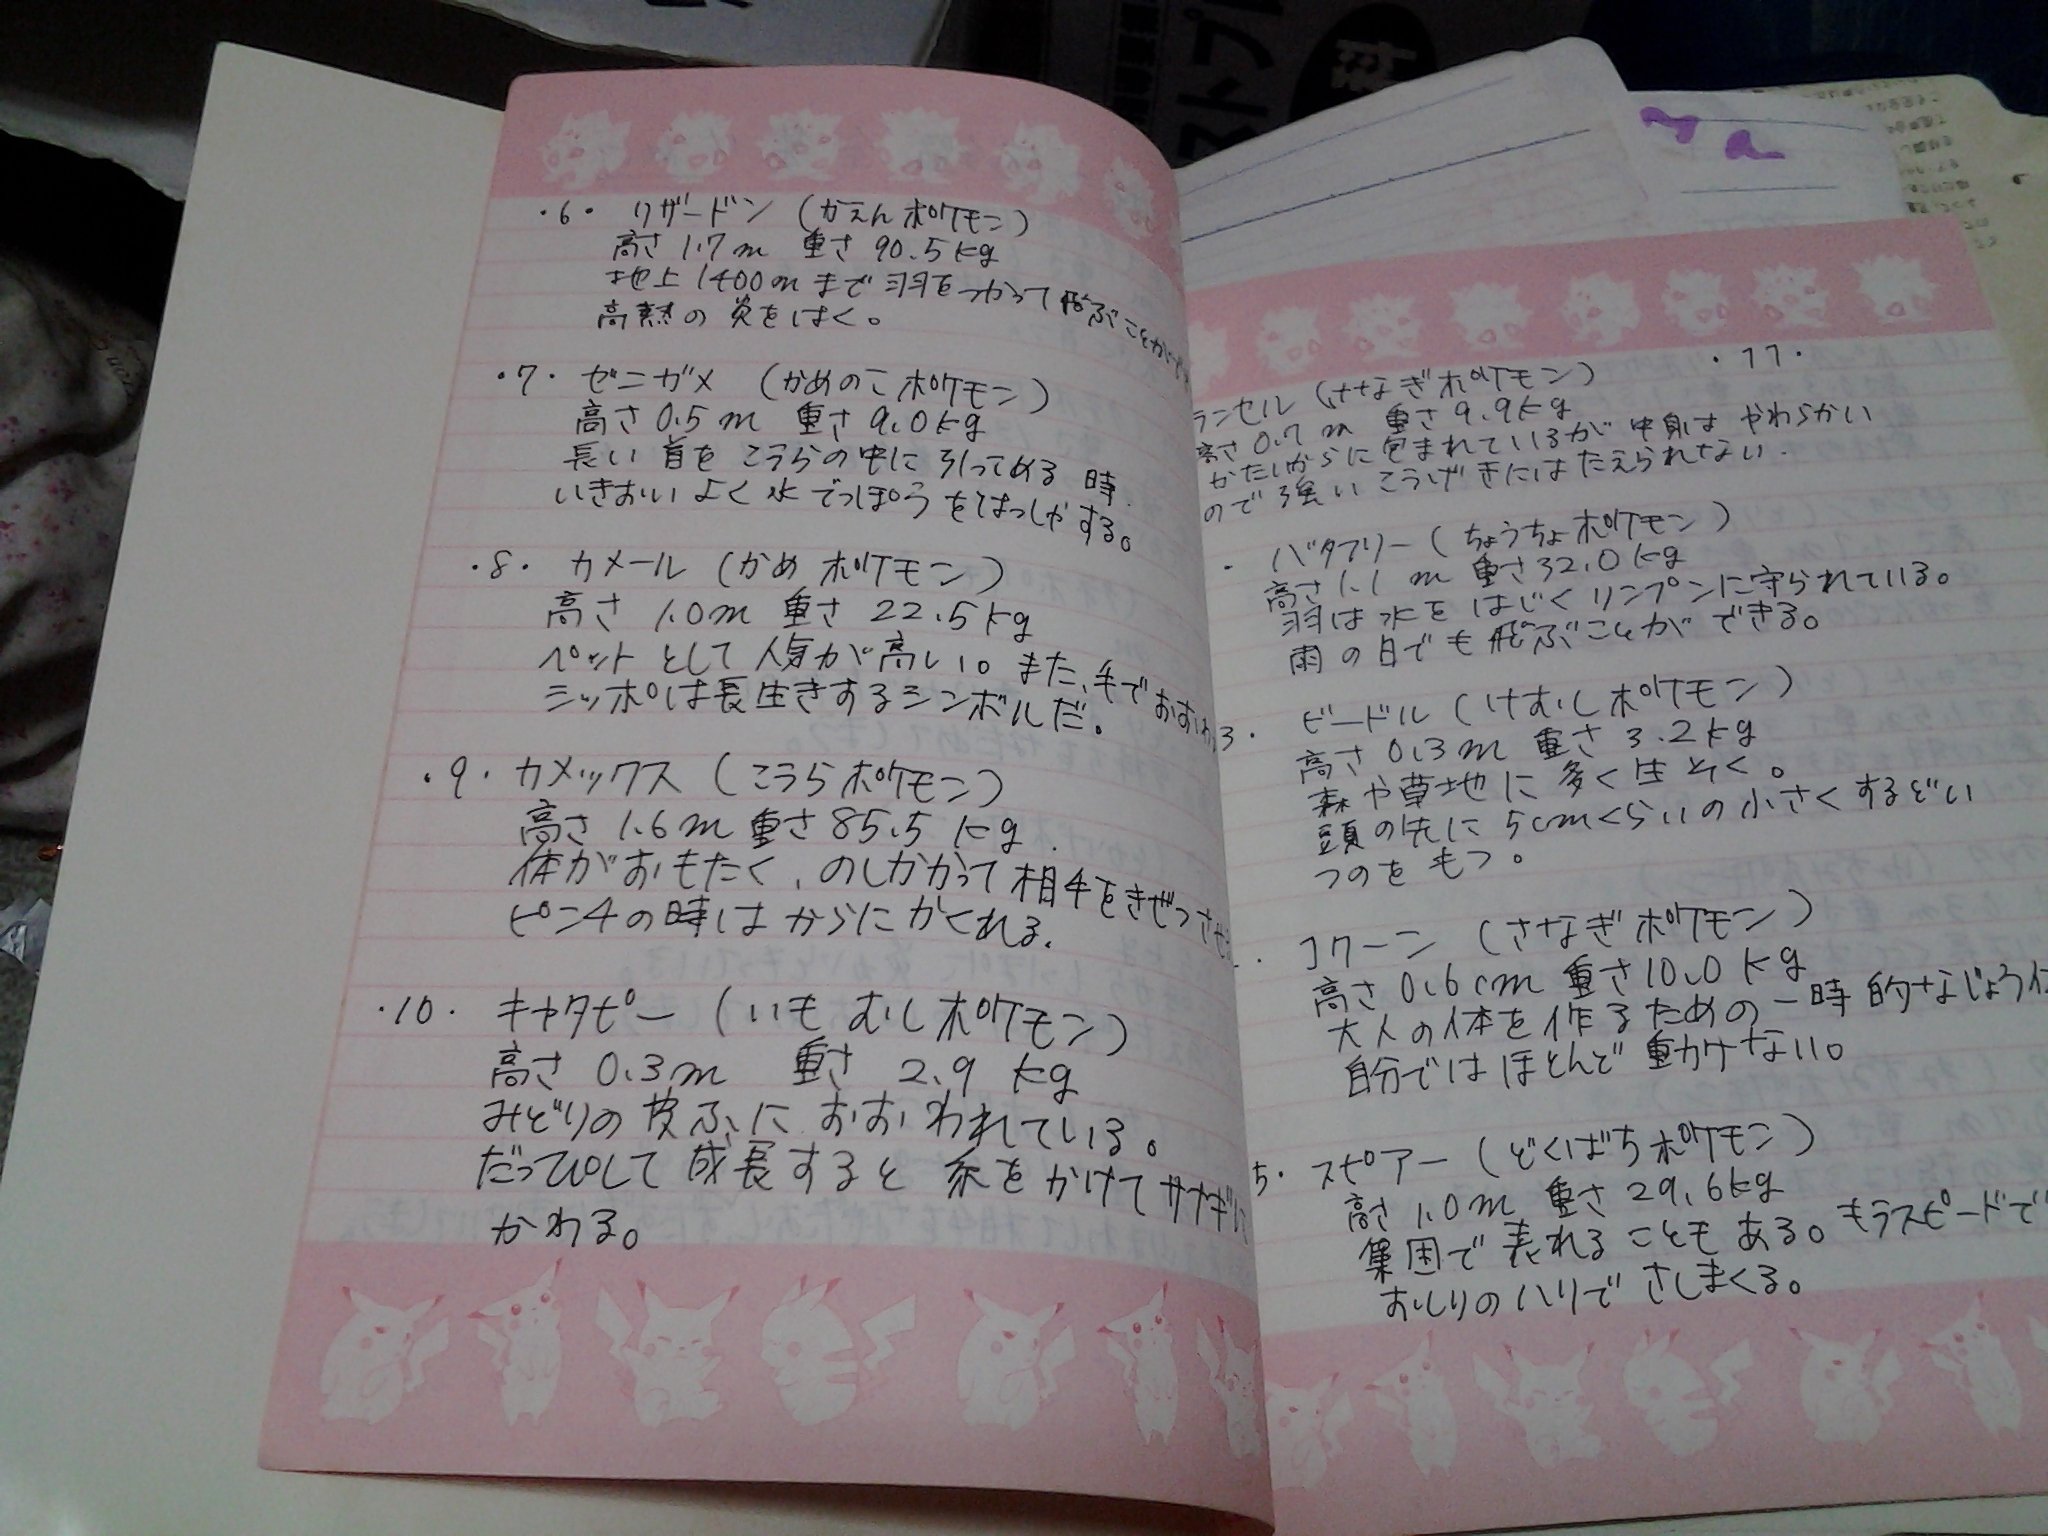 ・6・ リザードン（かえんポケモン）
高さ 1.7m 重さ 90.5kg
地上1400mまで羽をつかって飛ぶことが
高熱の炎をはく。
・7・ ゼニガメ （かめのこポケモン）
高さ 0.5m 重さ 9.0kg
長い首をこうらの中に引っこめる時
いきおいよく水でっぽうをはっしゃする。
・8・ カメール（かめポケモン）
高さ 1.0m 重さ 22.5kg
ペットとして人気が高い。また、手でおおわ
シッポは長生きするシンボルだ。
・9・ カメックス（こうらポケモン）
高さ 1.6m 重さ 85.5kg.
体がおもたく、のしかかって相手をきぜつさせ
ピンチの時はからにかくれる.
・10・ キャタピー（いもむしポケモン）
高さ 0.3m 重さ 2.9kg
みどりの皮ふにおおわれている。
だっぴして成長すると糸をかけてサナギに
かわる。
・11・
ランセル（さなぎポケモン）
高さ0.7m 重さ9.9kg
かたいからに包まれているが中身はやわらかい
ので強いこうげきにはたえられない.
・ バタフリー（ちょうちょポケモン）
高さ1.1m 重さ32.0kg
羽は水をはじくリンプンに守られている。
雨の日でも飛ぶことができる。
3・ ビードル（けむしポケモン）
高さ 0.3m 重さ 3.2kg
森や草地に多く生そく。
頭の先に5cmくらいの小さくするどい
つのをもつ。
・ コクーン（さなぎポケモン）
高さ 0.6cm 重さ10.0kg
大人の体を作るための一時的なじょう
自分ではほとんど動けない。
5・ スピアー（どくばちポケモン）
高さ 1.0m 重さ 29.6kg
集団で表れることもある。もうスピードで
おしりのハリでさしまくる。